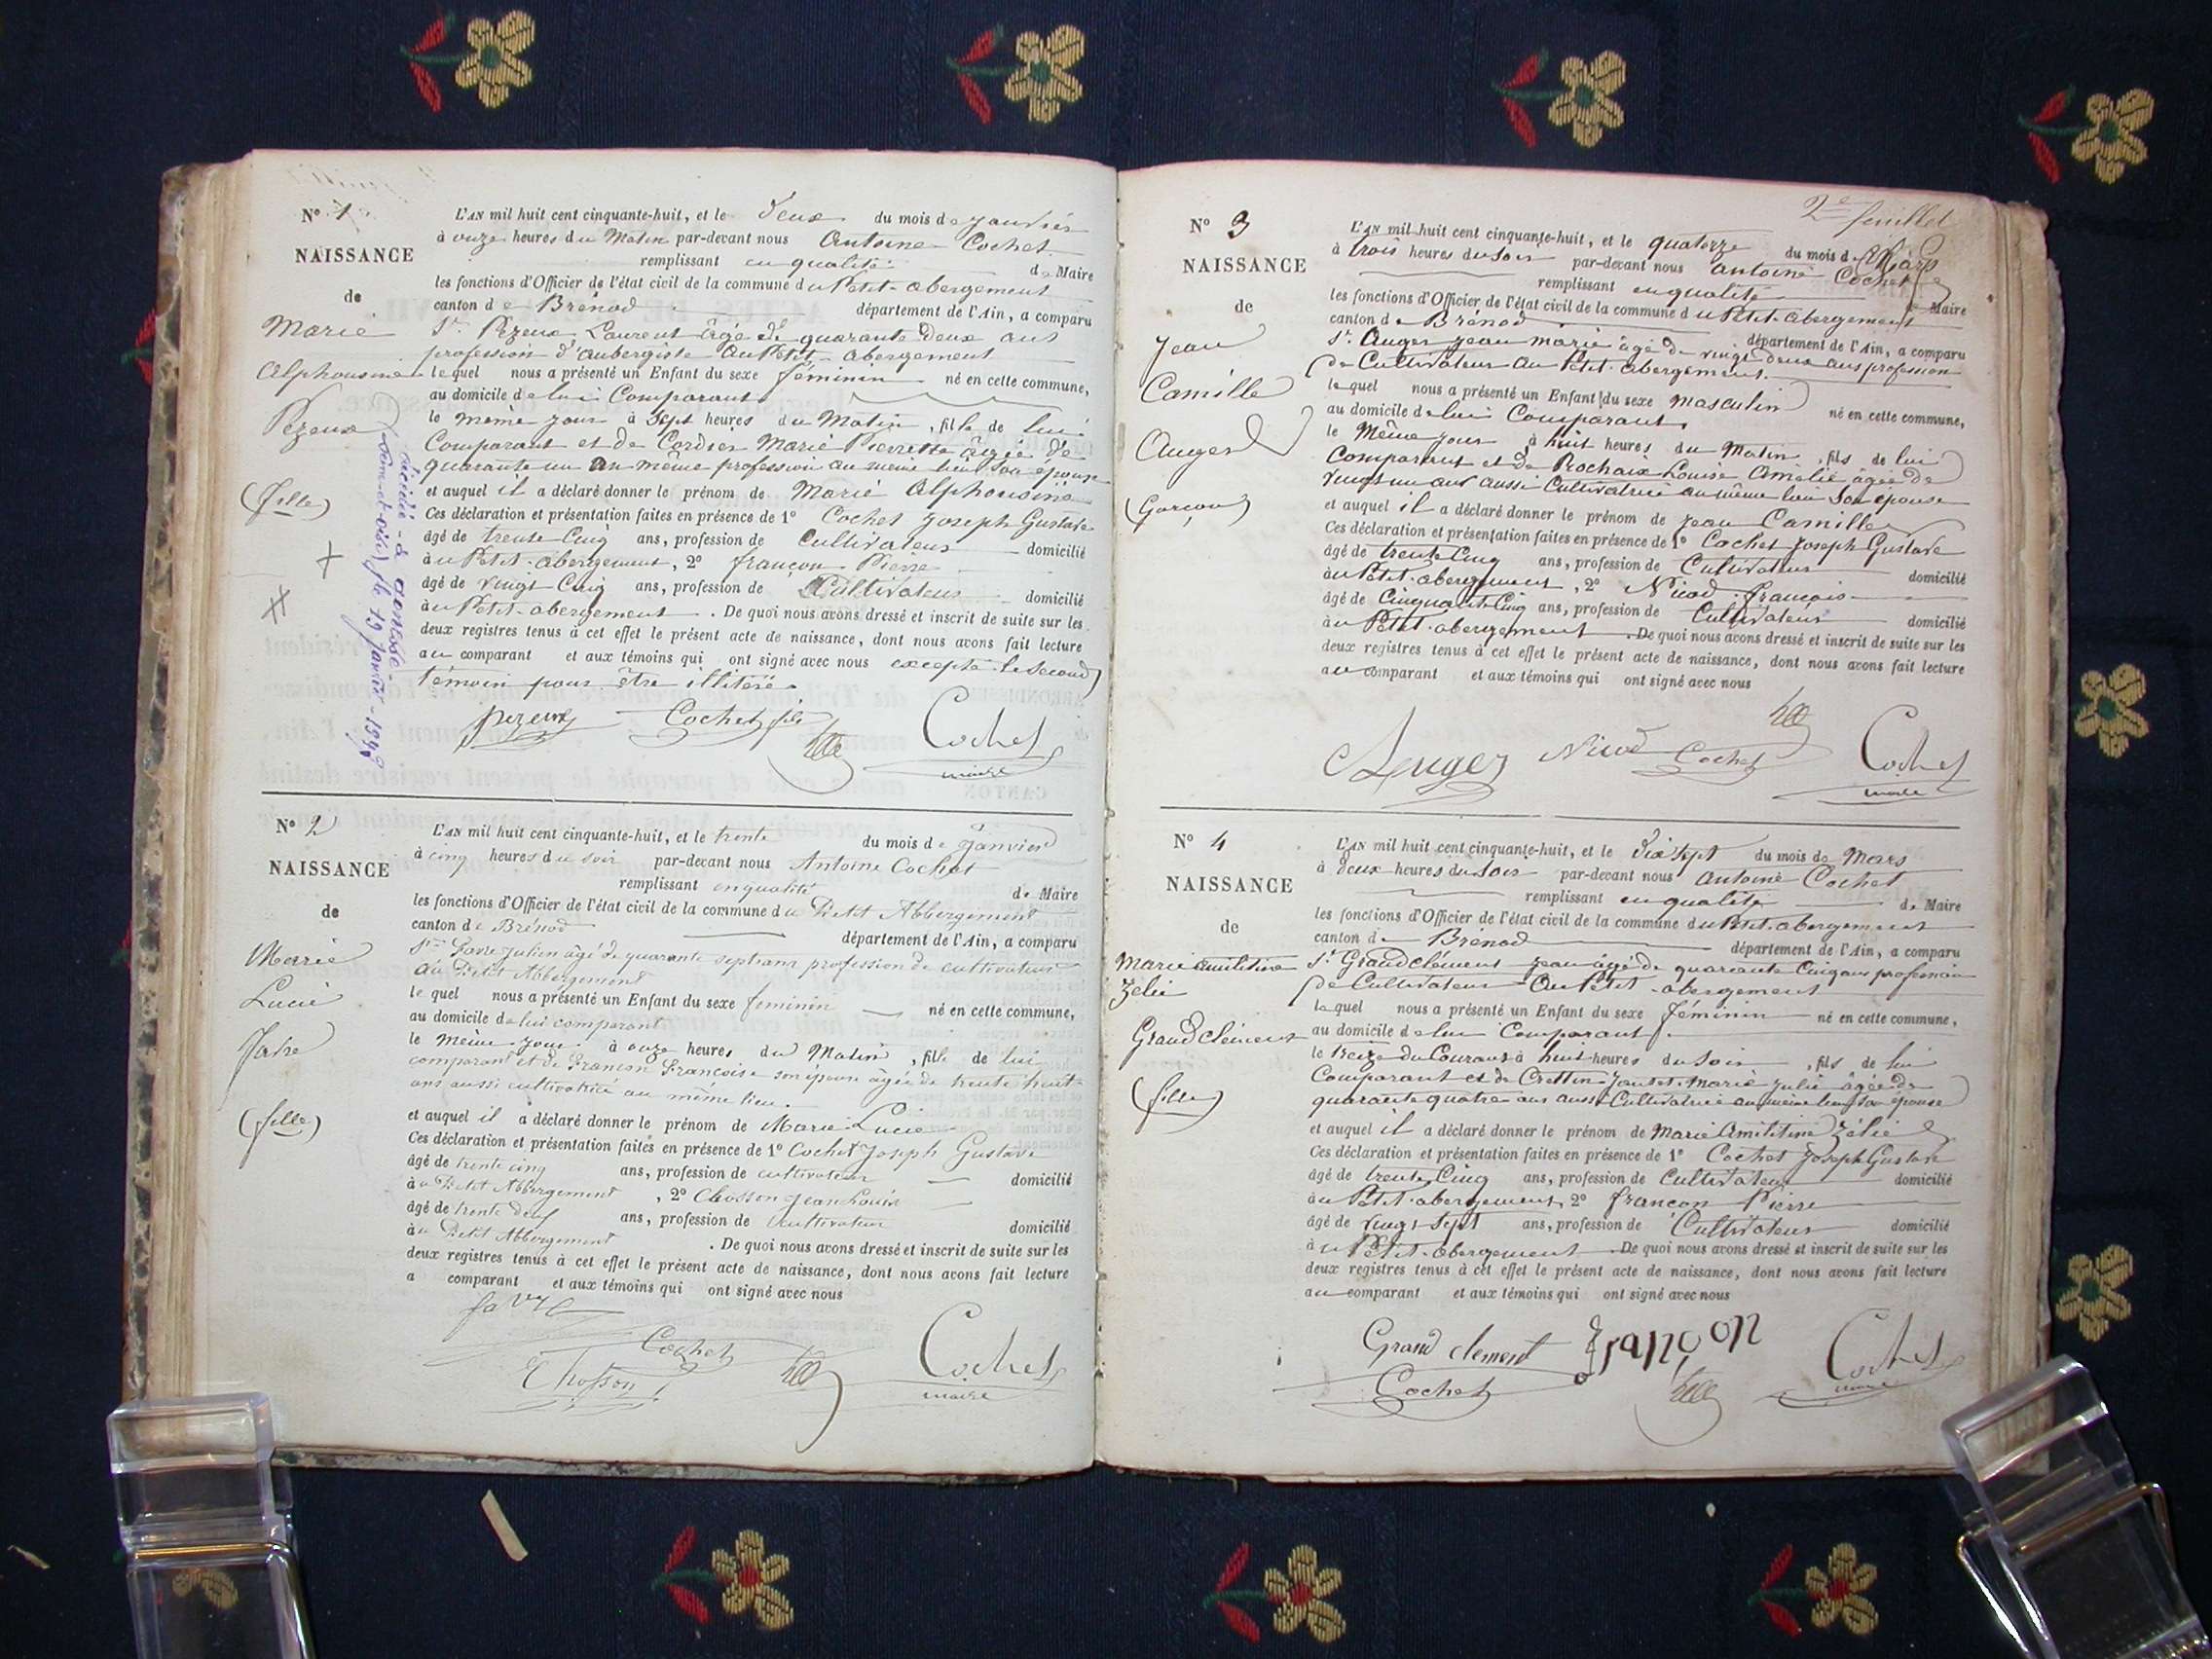 N° 1
NAISSANCE
de
Marie
Alphonsine
Pezeux
(fille)
décédé à gonesse
(Seine-et-oise) le 19 janvier
L'AN mil huit cent cinquante-huit, et le deux du mois de janvier
à onze heures du Matin par-devant nous Antoine Cochet
remplissant en qualité de Maire
les fonctions d'Officier de l'état civil de la commune du Petit-abergement
canton de Brénod département de l'Ain, a comparu
Sr. Pezeux Laurent âgé de quarante deux ans
profession d'aubergiste au Petit-abergement
lequel nous a présenté un Enfant du sexe féminin né en cette commune,
au domicile de lui Comparant
le même jour à Sept heures du Matin, fille de lui
Comparant et de Cordier Marie Pierrette âgée de
quarante un an même profession au même lieu son épouse
et auquel il a déclaré donner le prénom de Marie Alphonsine
Ces déclaration et présentation faites en présence de 1° Cochet Joseph Gustave
âgé de trente Cinq ans, profession de Cultivateur domicilié
au Petit-abergement, 2° françon Pierre
âgé de vingt Cinq ans, profession de Cultivateur domicilié
au Petit-abergement. De quoi nous avons dressé et inscrit de suite sur les
deux registres tenus à cet effet le présent acte de naissance, dont nous avons fait lecture
au comparant et aux témoins qui ont signé avec nous excepté le Second
témoin pour être illiteré
pezeux Cochet fils Cochet
maire
N° 2
NAISSANCE
de
Marie
Lucie
Favre
(fille)
L'AN mil huit cent cinquante-huit, et le trente du mois de Janvier
à cinq heures du soir par-devant nous Antoine Cochet
remplissant en qualité de Maire
les fonctions d'Officier de l'état civil de la commune du Petit Abbergement
canton de Brénod département de l'Ain, a comparu
Sr. Favre Julien âgé de quarante sept ans profession de cultivateur
au Petit Abbergement
lequel nous a présenté un Enfant du sexe feminin né en cette commune,
au domicile de lui comparant
le même jour à onze heures du Matin, fille de lui
comparant et de Françon Françoise son épouse âgée de trente huit
ans aussi cultivatrice au même lieu.
et auquel il a déclaré donner le prénom de Marie Lucie
Ces déclaration et présentation faites en présence de 1° Cochet Joseph Gustave
âgé de trente cinq ans, profession de cultivateur domicilié
au Petit Abbergement, 2° Chosson Jean Louis
âgé de trente ans, profession de cultivateur domicilié
au Petit Abbergement. De quoi nous avons dressé et inscrit de suite sur les
deux registres tenus à cet effet le présent acte de naissance, dont nous avons fait lecture
a comparant et aux témoins qui ont signé avec nous
favre
Cochet Cochet
Chosson maire
2e feuillet
N° 3
NAISSANCE
de
Jean
Camille
Auger
(Garçon)
L'AN mil huit cent cinquante-huit, et le quatorze du mois de Mars
à trois heures du Soir par-devant nous Antoine Cochet
remplissant en qualité de Maire
les fonctions d'Officier de l'état civil de la commune du Petit-abergement
canton de Brénod département de l'Ain, a comparu
Sr. Auger Jean marie âgé de vingt deux ans profession
de Cultivateur au Petit-abergement
lequel nous a présenté un Enfant du sexe masculin né en cette commune,
au domicile de lui Comparant
le Même jour à huit heures du Matin, fils de lui
Comparant et de Prochaix Louise Amélie âgée de
vingt un ans aussi Cultivatrice au même lieu Son épouse
et auquel il a déclaré donner le prénom de Jean Camille
Ces déclaration et présentation faites en présence de 1° Cochet Joseph Gustave
âgé de trente Cinq ans, profession de Cultivateur domicilié
au Petit-abergement, 2° Nicod françois
âgé de Cinquante Cinq ans, profession de Cultivateur domicilié
au Petit-abergement. De quoi nous avons dressé et inscrit de suite sur les
deux registres tenus à cet effet le présent acte de naissance, dont nous avons fait lecture
au comparant et aux témoins qui ont signé avec nous
Auger Nicod Cochet Cochet
maire
N° 4
NAISSANCE
de
Marie
Zélie
Grandclément
(fille)
L'AN mil huit cent cinquante-huit, et le dix sept du mois de Mars
à deux heures du Soir par-devant nous Antoine Cochet
remplissant en qualité de Maire
les fonctions d'Officier de l'état civil de la commune du Petit-abergement
canton de Brénod département de l'Ain, a comparu
Sr. Grandclément Jean âgé de quarante Cinq ans profession
de Cultivateur Au Petit-abergement
lequel nous a présenté un Enfant du sexe féminin né en cette commune,
au domicile de lui Comparant
le treize du Courant à huit heures du Soir, fils de lui
Comparant et de Crettin Marie Julie âgée de
quarante quatre ans aussi Cultivatrice au même lieu Son épouse
et auquel il a déclaré donner le prénom de Marie Zélie
Ces déclaration et présentation faites en présence de 1° Cochet Joseph Gustave
âgé de trente Cinq ans, profession de Cultivateur domicilié
au Petit-abergement, 2° françon Pierre
âgé de vingt Sept ans, profession de Cultivateur domicilié
au Petit-abergement. De quoi nous avons dressé et inscrit de suite sur les
deux registres tenus à cet effet le présent acte de naissance, dont nous avons fait lecture
au comparant et aux témoins qui ont signé avec nous
Grand clement françon Cochet
Cochet maire